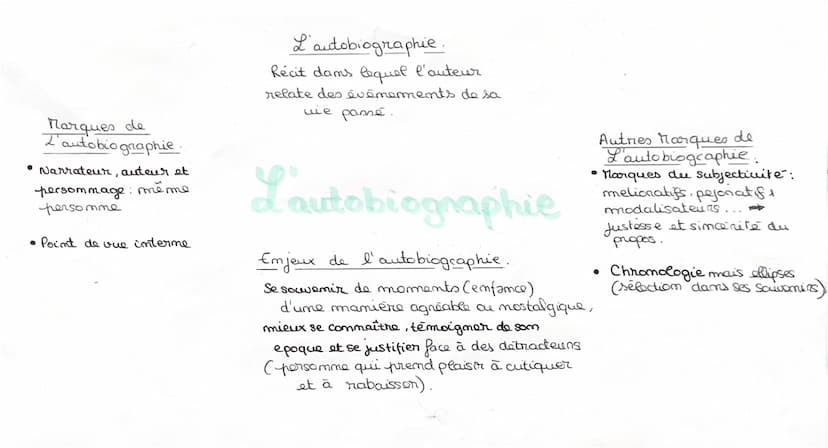 L'autobiographie.
Récit dans lequel l'auteur
relate des événements de sa
vie passé.
Marques de
L'autobiographie.
• Narrateur, auteur et
personnage : même
personne
• Point de vue interne
L'autobiographie
Autres Marques de
L'autobiographie.
• Marques du subjectivité :
mélioratifs, péjoratifs
modalisateurs... →
justesse et sincérité du
propos.
• Chronologie mais ellipses
(sélection dans ses souvenirs)
Enjeux de l'autobiographie.
Se souvenir de moments (enfance)
d'une manière agréable ou nostalgique,
mieux se connaître, témoigner de son
epoque et se justifier face à des détracteurs
(personne qui prend plaisir à critiquer
et à rabaisser).